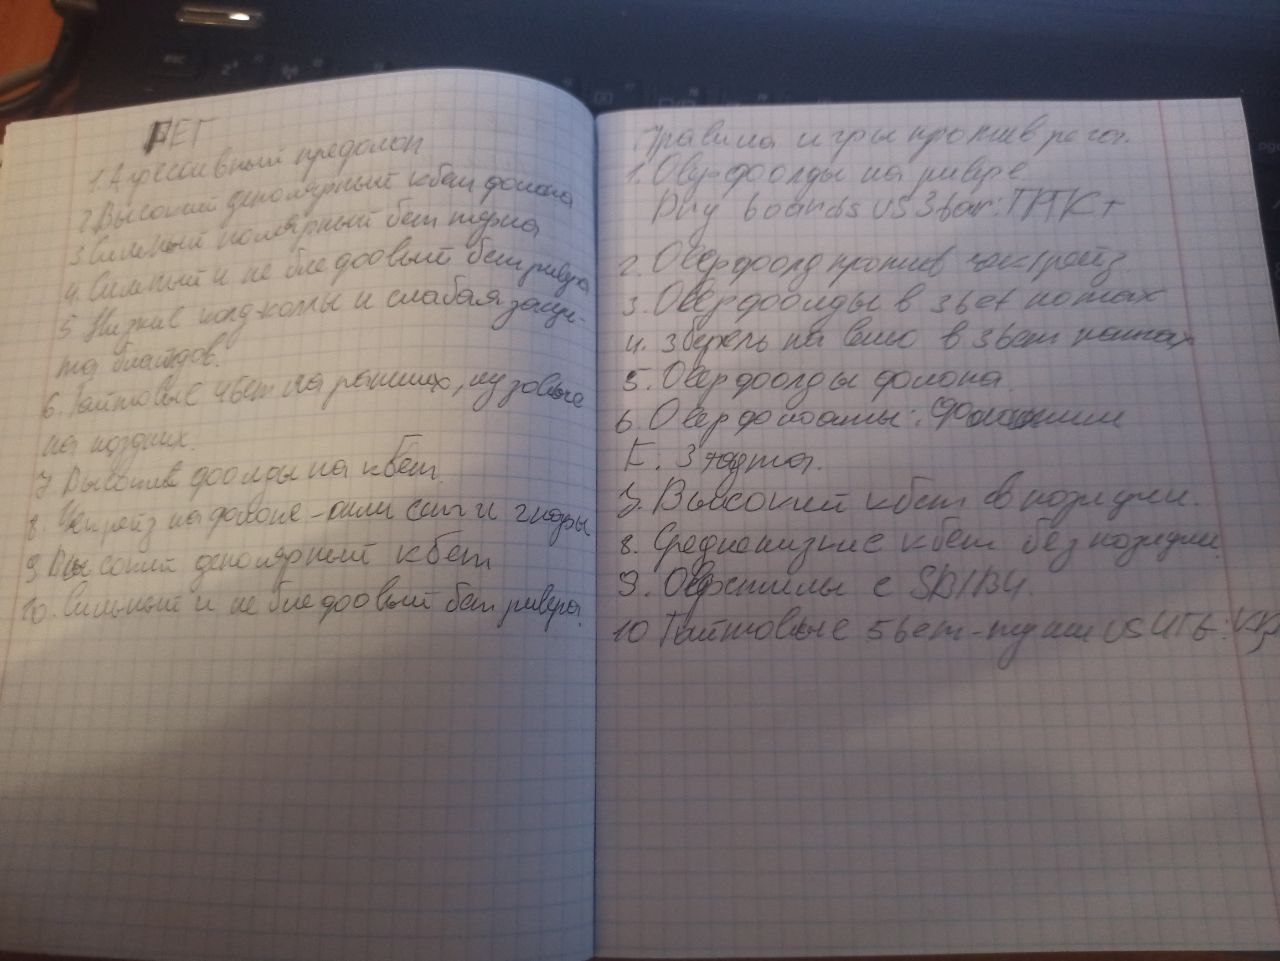 РЕГ
1. Агрессивный префлоп
2. Высокий деполярный кбет флопа
3. Сильный полярный бет терна
4. Сильный и не блефовый бет ривера
5 Низкие колд-коллы и слабая защи-
та блайндов.
6. Тайтовые 4бет на ранних, лузовые
на поздних.
7 Высокие фолды на кбет.
8. Чекрейз на флопе - или сет и гладшы
9 Высокий деполярный кбет
10. Сильный и не блефовый бет ривера.
Правила игры против рега.
1. Овер-фолды на ривере
Dry boards vs 3bar: ТПТК+
2. Оверфолд против чекрейз
3. Оверфолды в 3bet потах
4. 3баррель на велью в 3бет потах
5. Оверфолды флопа
6. Оверфолды:
3 терна.
7. Высокий кбет в позиции.
8. Средненизкие кбет без позиции
9. Оверстилы с SB/BU.
10 Тайтовые 5бет-пуши vs UTG: KK